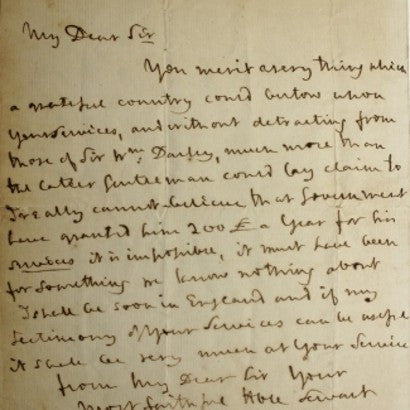 My Dear Sir
You merit every thing which
a grateful country could bestow upon
your services, and without detracting from
those of Sir Wm. Darley, much more than
the latter Gentleman could lay claim to
I really cannot believe that Government
have granted him 200£ a Year for his
services it is impossible, it must have been
for something we know nothing about
I shall be soon in England and if my
testimony of Your Services can be useful
it shall be very much at Your Service
from My Dear Sir Your
Most faithful Hble Servant